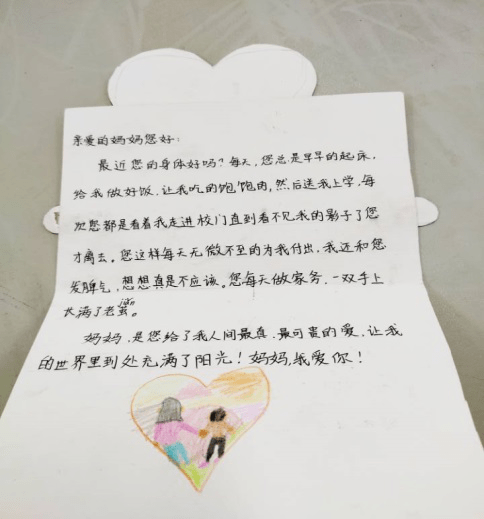 亲爱的妈妈您好：
最近您的身体好吗？每天，您总是早早的起床，
给我做好饭，让我吃的饱饱肉，然后送我上学，每
次您都是看着我走进校门直到看不见我的影子了您
才离去。您这样每天无微不至的为我付出，我还和您
发脾气，想想真是不应该。您每天做家务，一双手上
长满了老茧。
妈妈，是您给了我人间最真、最可贵的爱，让我
的世界里到处充满了阳光！妈妈，我爱你！